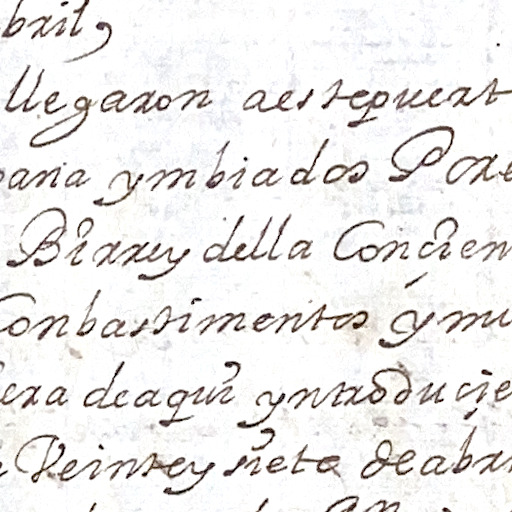 bril,
llegaron aestepuert
pana ymbiados Pore
Birrey della Concien
Conbastimentos ymu
era deaqui yntroducie
Veintey siete deabr